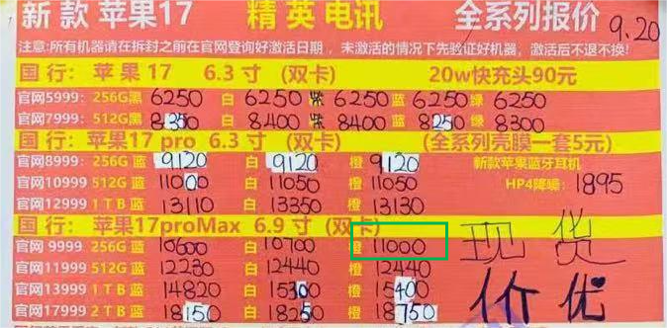 新款苹果17 精英电讯 全系列报价 9.20
注意:所有机器请在拆封之前在官网登询好激活日期,未激活的情况下先验证好机器,激活后不退不换!
国行: 苹果17 6.3寸 (双卡) 20w快充头90元
官网5999: 256G黑 6250 白 6250 紫 6250 蓝 6250 绿 6250
官网7999: 512G黑 8350 白 8400 紫 8400 蓝 8250 绿 8300
国行: 苹果17 pro 6.3寸 (双卡) (全系列壳膜一套5元)
官网8999: 256G 蓝 9120 白 9120 橙 9120 新款苹果蓝牙耳机
官网10999 512G 蓝 11000 白 11050 橙 11050 HP4降噪: 1895
官网12999 1TB 蓝 13110 白 13350 橙 13130
国行: 苹果17proMax 6.9寸 (双卡) 现货
官网 9999 256G 蓝 10600 白 10700 橙 11000
官网11999 512G 蓝 12230 白 12440 橙 12440 价优
官网13999 1TB 蓝 14820 白 15300 橙 15400
官网17999 2TB 蓝 18150 白 18250 橙 18750